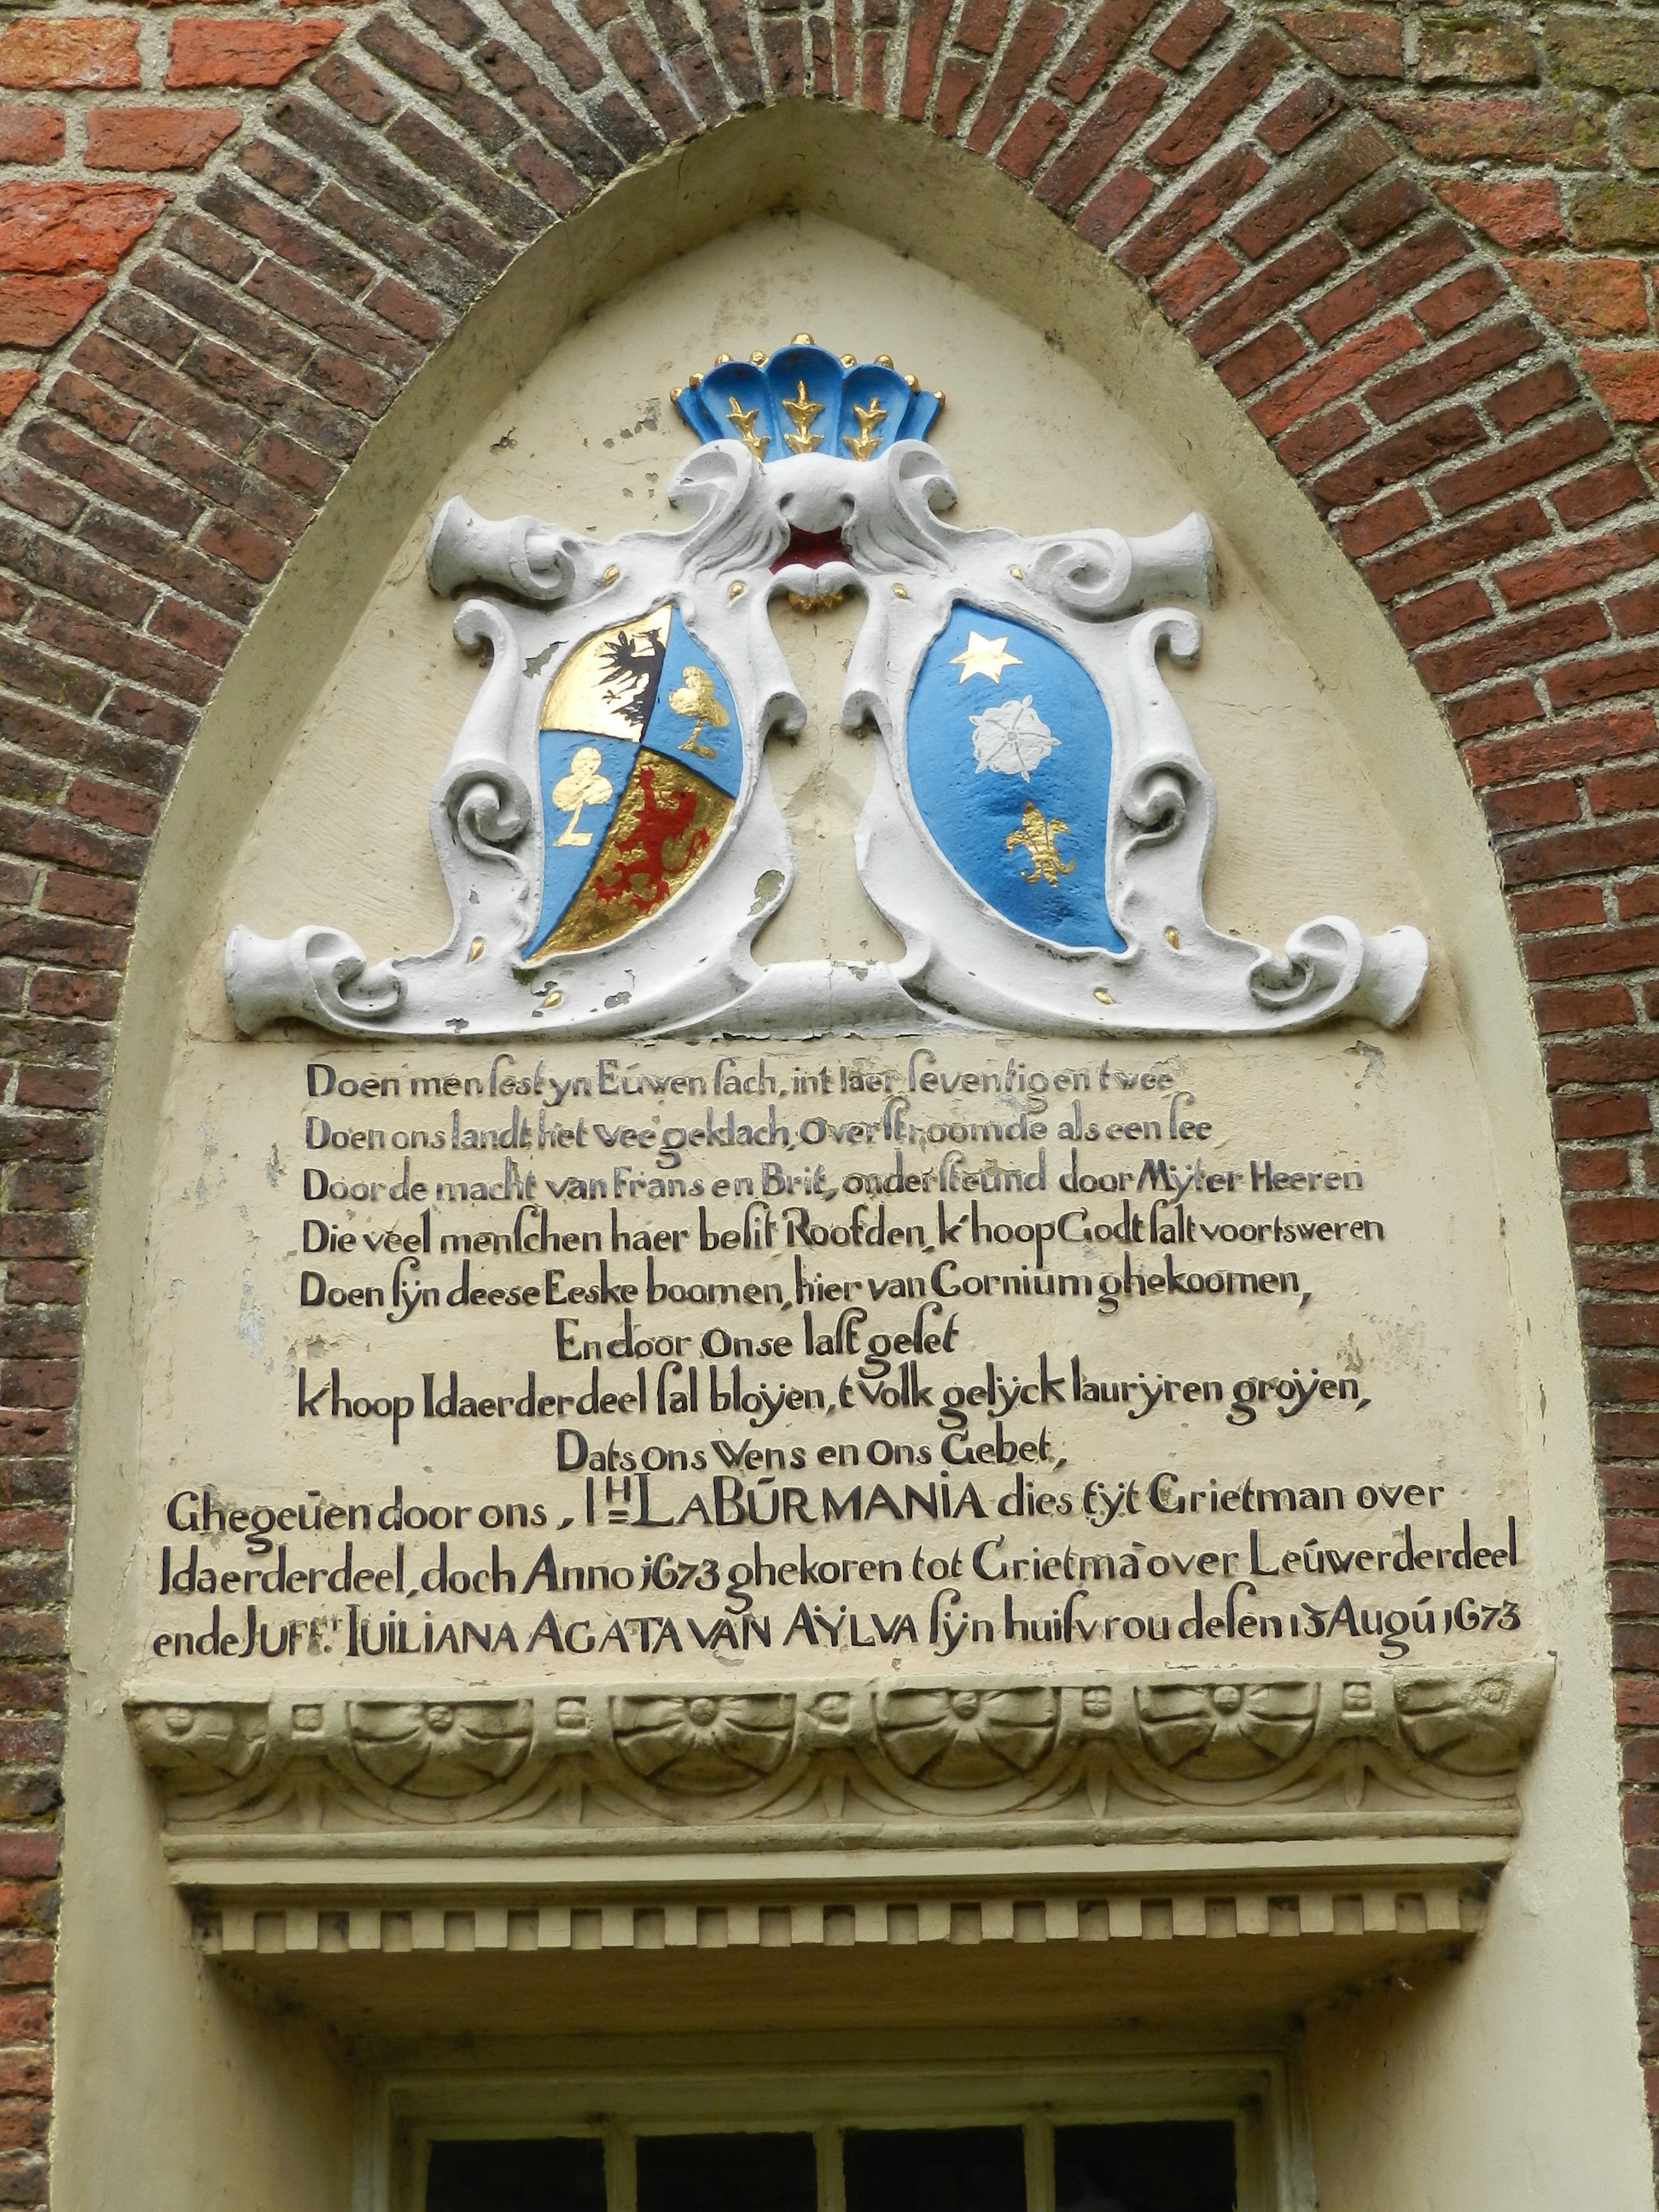 Doen men sestyn Eúwen sach, int Iaer seventig en twee
Doen ons landt het vee geklach, Overstroomde als een see
Door de macht van Frans en Brit, ondersteund door Mÿter Heeren
Die veel menschen haer besit Roofden, k'hoop Godt salt voortsweren
Doen sÿn deese Eeske boomen, hier van Cornium ghekoomen,
En door Onse last geset
k'hoop Idaerderdeel sal bloÿen, t volk gelÿck laurÿren groÿen,
Dats ons Wens en Ons Gebet,
Ghegeüen door ons, IH LABŪRMANIA dies tÿt Grietman over
Idaerderdeel, doch Anno 1673 ghekoren tot Grietmā over Leúwerderdeel
ende JUFFr. IUILIANA AGATA VAN AŸLVA sÿn huisvrou desen 13 Augú 1673